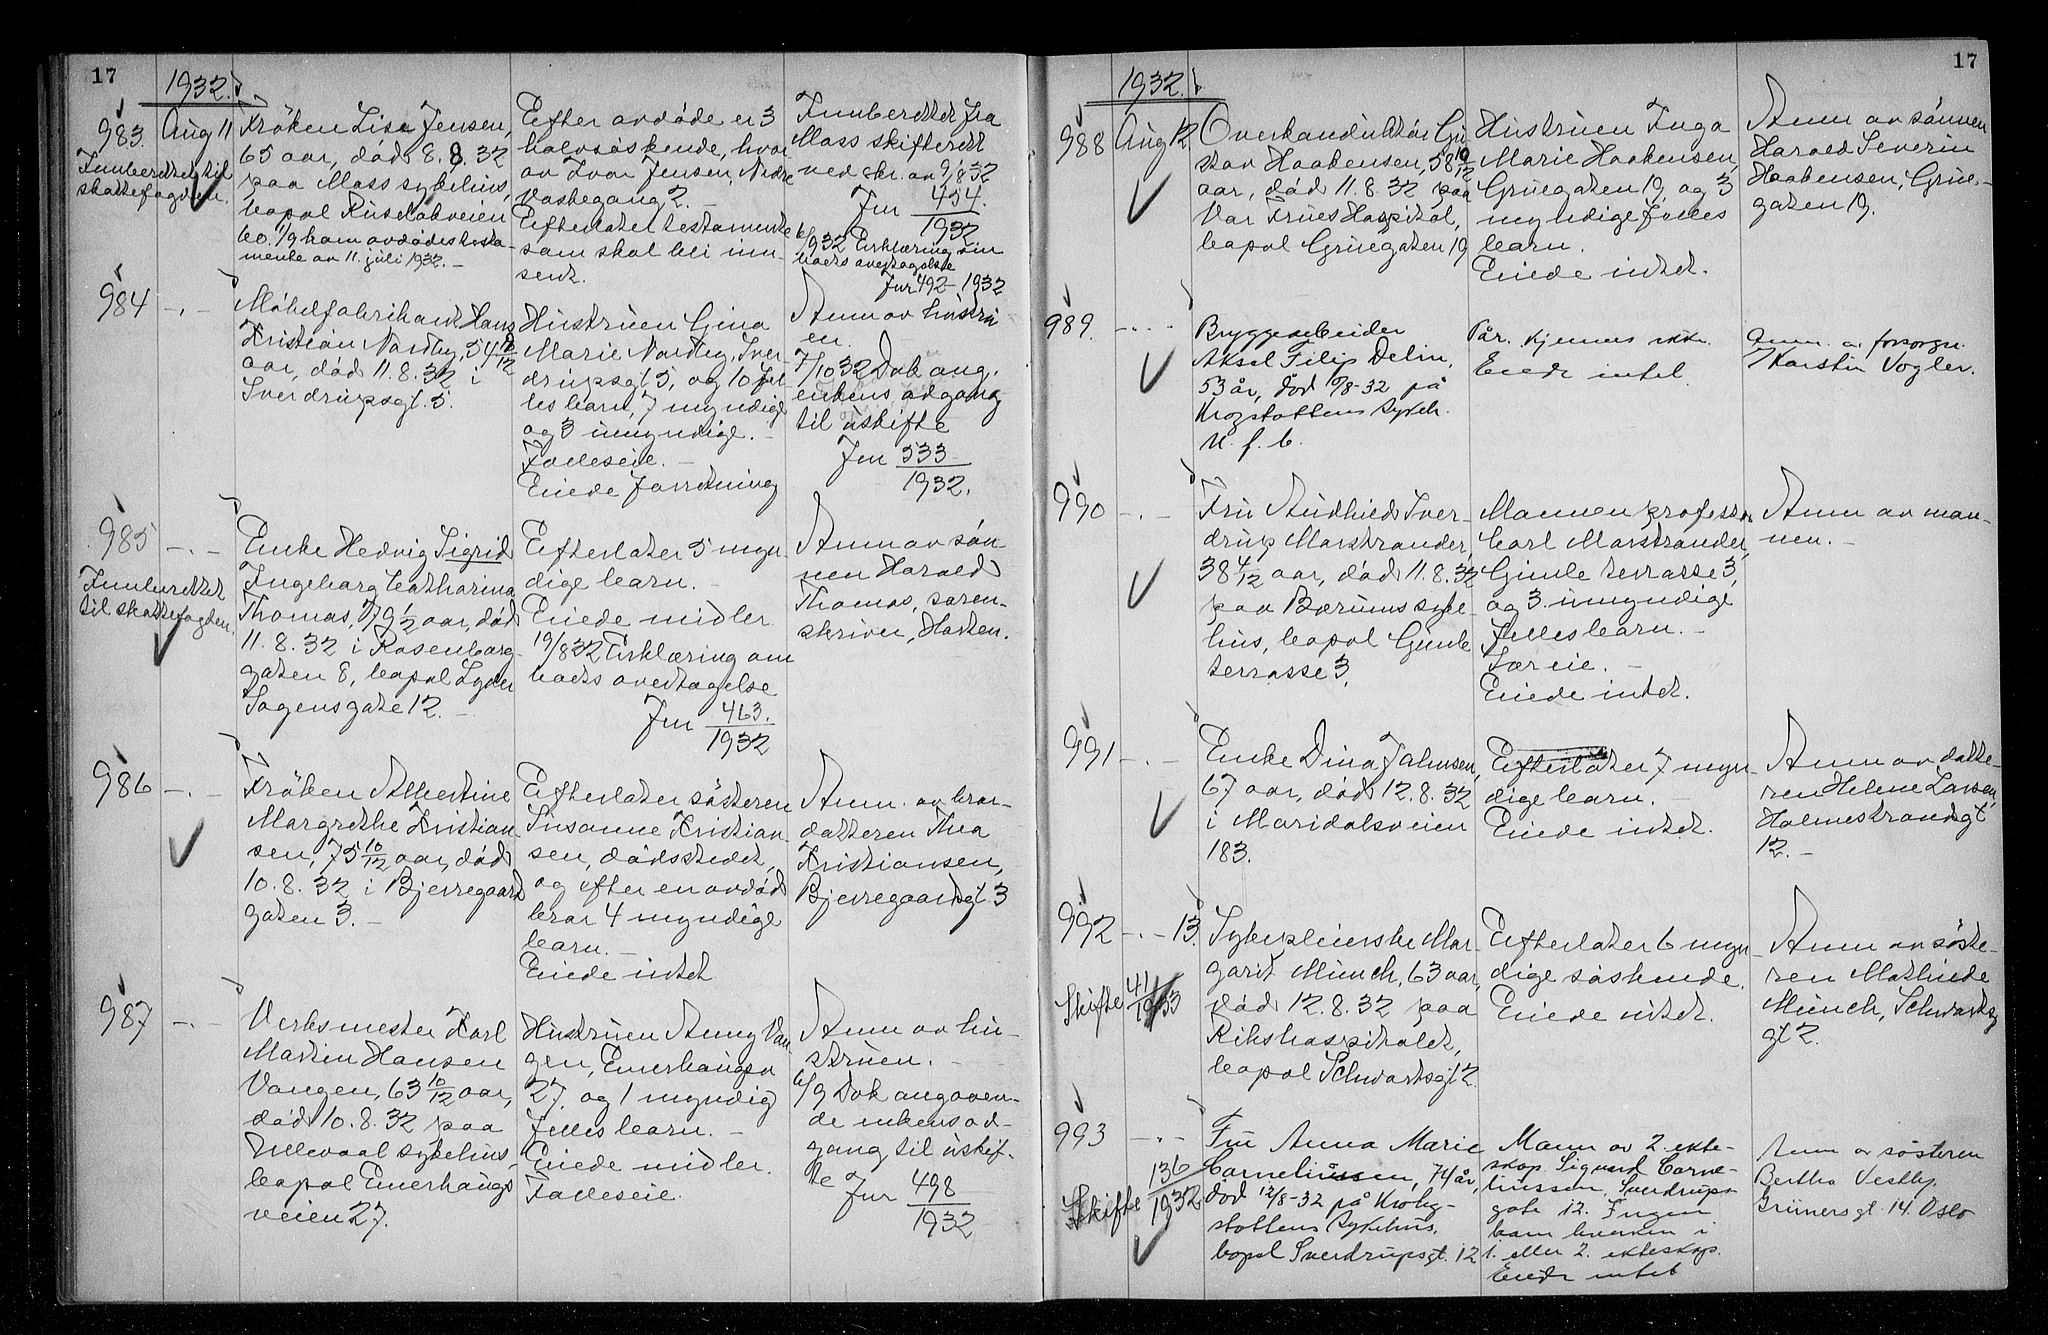 17
1932.
983.
Innberettet til
skattefogden.
Aug 11
Frøken Lise Jensen,
65 aar, død 8.8.32
paa Moss sykehus,
bopol Ruseløkveien
60. 1/9 kom avdødes testa-
mente av 11. juli 1932. -
Efter avdøde er 3
halvsøskende, hvor
av Ivar Jensen, Nedre
Vaskegang 2.
Efterlater testamente
som skal bli inn-
sendt.
Innberettet fra
Moss skifterett
ved skr. av 9/8 32
Jnr 454.
1932
6/9 32 Erklæring om
boets overtagelse
Jnr 492 - 1932
984
- " -
Møbelfabrikant Hans
Kristian Nordby, 54
aar, død 11.8.32 i
Sverdrupsgt. 5.
Hustruen Gina
Marie Nordby, Sver-
drupsgt 5, og 10 fel-
les barn, 7 myndige
og 3 umyndige. -
Felleseie. -
Eiede forretning
Anm av hustru
en.
7/10 32 Dok ang.
enkens adgang
til uskifte
Jnr 533
1932.
985
Innberettet
til skattefogden.
- " -
Enke Hedvig Sigrid
Ingeborg Catharina
Thomas, 79 1/2 aar, død
11.8.32 i Rosenborg-
gaten 8, bopol Lyder
Sagensgate 12. -
Efterlater 5 myn-
dige barn. -
Eiede midler.
19/8 32 Erklæring om
boets overtagelse
Jnr 463.
1932
Anm av søn-
nen Harald
Thomas, soren-
skriver, Horten.
986
- " -
Frøken Albertine
Margrethe Kristian-
sen, 75 10/12 aar, død
10.8.32 i Bjerregaard
gaten 3. -
Efterlater søsteren
Susanne Kristian-
sen, dødsstedet,
og efter en avdød
bror 4 myndige
barn. -
Eiede intet
Anm. av bror-
datteren Thea
Kristiansen,
Bjerregaardsgt 3
987
- " -
Verksmester Karl
Martin Hansen
Vangen, 63 10/12 aar,
død 10.8.32 paa
Ullevaal sykehus,
bopol Enerhaugs
veien 27.
Hustruen Anny Van-
gen, Enerhaugsv
27. og 1 myndig
felles barn. -
Eiede midler.
Felleseie.
Anm av hu-
struen. -
6/9 Dok angaaen-
de enkens ad-
gang til uskif-
te Jnr 498
1932
17
1932.
988
Aug 12
Overkonduktør Gu-
stav Haakensen, 58 10/12
aar, død 11.8.32 paa
Vor Frues Hospital,
bopol Gruegaten 19
Hustruen Inga
Marie Haakensen,
Gruegaten 19, og 3
myndige felles
barn.
Eiede intet.
Anm av sønnen
Harald Severin
Haakensen, Grue-
gaten 19.
989.
- " -
Bryggearbeider
Aksel Filip Delin,
53 år, død 10/8-32 på
Krogstøttens sykeh.
U. f. b.
Pår. kjennes ikke.
Eiede intet.
Anm. av forsorgn.
Thorstin Vogler.
990
- " -
Fru Audhild Sver-
drup Marstrander,
38 4/12 aar, død 11.8.32
paa Bærums syke-
hus, bopol Gimle
terrasse 3.
Mannen professor
Carl Marstrander,
Gimle terrasse 3,
og 3 umyndige
felles barn. -
Særeie. -
Eiede intet.
Anm av man-
nen. -
991
- " -
Enke Dina Johnsen,
67 aar, død 12.8.32
i Maridalsveien
183.
Efterlater 7 myn-
dige barn. -
Eiede intet.
Anm av datte-
ren Helene Larsen,
Holmestrandgt
12. -
992
- " - 13.
Skifte 41/1933
Sykepleierske Mar-
garit Münch, 63 aar,
død 12.8.32 paa
Rikshospitalet,
bopol Schwartzgt 2.
Efterlater 6 myn-
dige søskende.
Eiede intet.
Anm av søste-
ren Mathilde
Münch, Schwartz
gt 2.
993
- " -
Skifte 136
1932
Fru Anna Marie
Corneliussen, 74 år,
død 12/8-32 på Krohg-
støttens sykehus,
bopol Sverdrupsgt. 12
Mann av 2. ekte-
skap Sigurd Corne-
liussen, Sverdrups-
gate 12. Ingen
barn hverken i
1. eller 2. ekteskap.
Eiede intet
Anm av søsteren
Bertha Vestby,
Grünersgt. 14. Oslo